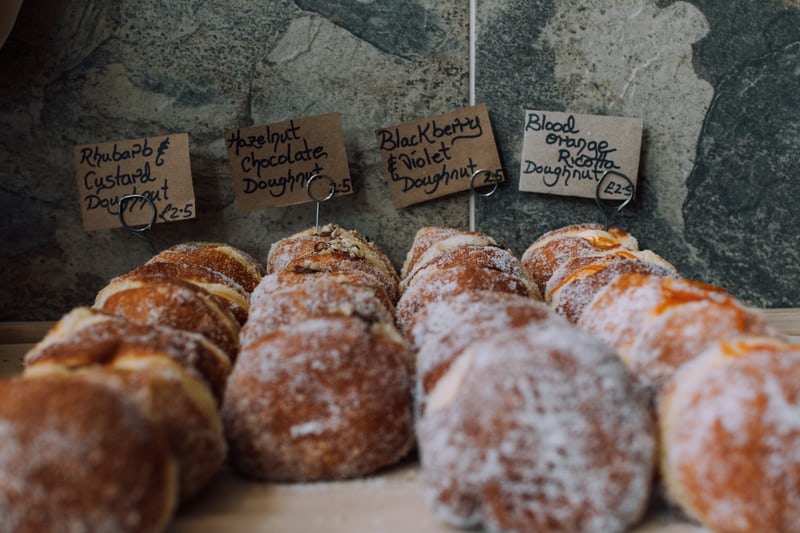 Rhubarb &
Custard
Doughnut
£2.5
Hazelnut
Chocolate
Doughnut
2.5
Blackberry
& Violet
Doughnut
2.5
Blood
orange
Ricotta
Doughnut
£2.5